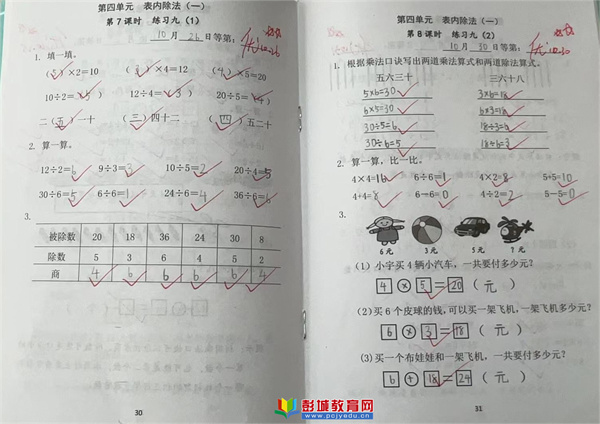 第四单元 表内除法(一)
第7课时 练习九(1)
10月26日等第:
优 10.26
1. 填一填。
(5)×2=10 (3)×4=12 (4)×5=20
10÷2=(5) 12÷4=(3) 20÷5=(4)
二(五)一十 (三)四十二 (四)五二十
2. 算一算。
12÷2=6 9÷3=3 10÷5=2 20÷4=5
30÷6=5 6÷6=1 24÷6=4 36÷6=6
3.
被除数 20 18 36 24 30 8
除数 5 3 6 4 5 2
商 4 6 6 6 6 4
30
第四单元 表内除法(一)
第8课时 练习九(2)
10月30日等第:
优 10.30
1. 根据乘法口诀写出两道乘法算式和两道除法算式。
五六三十 三六十八
5×6=30 3×6=18
6×5=30 6×3=18
30÷5=6 18÷3=6
30÷6=5 18÷6=3
2. 算一算,比一比。
4×4=16 6÷6=1 4×2=8 5+5=10
4+4=8 6-6=0 4÷2=2 5-5=0
3.
6元 3元 5元 ?元
(1)小宇买4辆小汽车,一共要付多少元?
4×5=20(元)
(2)买6个皮球的钱,可以买一架飞机,一架飞机多少元?
6×3=18(元)
(3)买一个布娃娃和一架飞机,一共要付多少元?
6+18=24(元)
31
彭城教育网
www.pcjyedu.cn